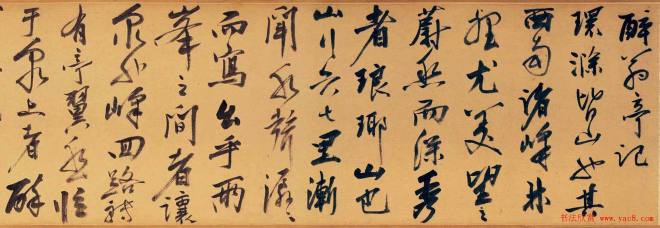 醉翁亭記
環滁皆山也其
西南諸峰林
壑尤美望之
蔚然而深秀
者琅琊山也
山行六七里漸
聞水聲潺潺
而寫出乎兩
峯之間者讓
泉也峰回路轉
有亭翼然臨
于泉上者醉
书法欣赏
www.yac8.com